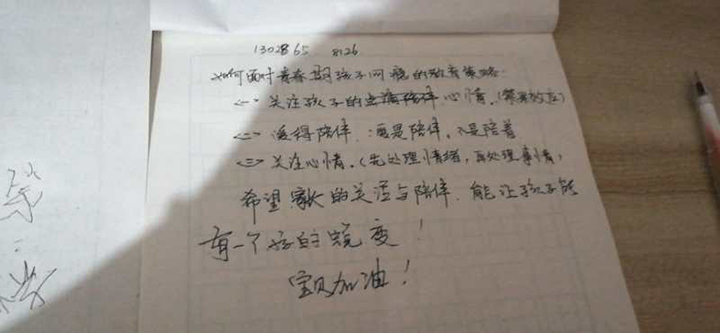 1302865 8126
如何面对青春期孩子问题的教育策略:
<一> 关注孩子的心情.(霍桑效应)
<二> 懂得陪伴.:要是陪伴,不是陪着
<三> 关注心情.(先处理情绪,再处理事情)
希望家长的关注与陪伴.能让孩子能
有一个好的蜕变!
宝贝加油!